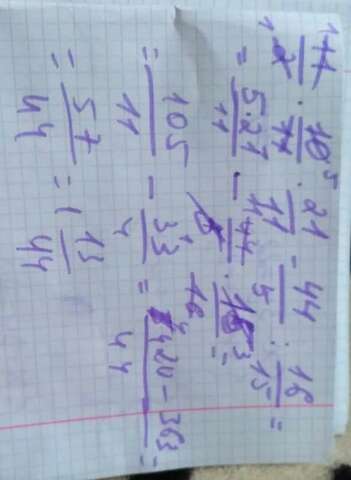 11/2 · 10/11 · 21/11 - 44/5 : 16/15 =
= 5·21/11 - 44/5 · 15/16 =
= 105/11 - 33/4 = 420-363/44 =
= 57/44 = 1 13/44